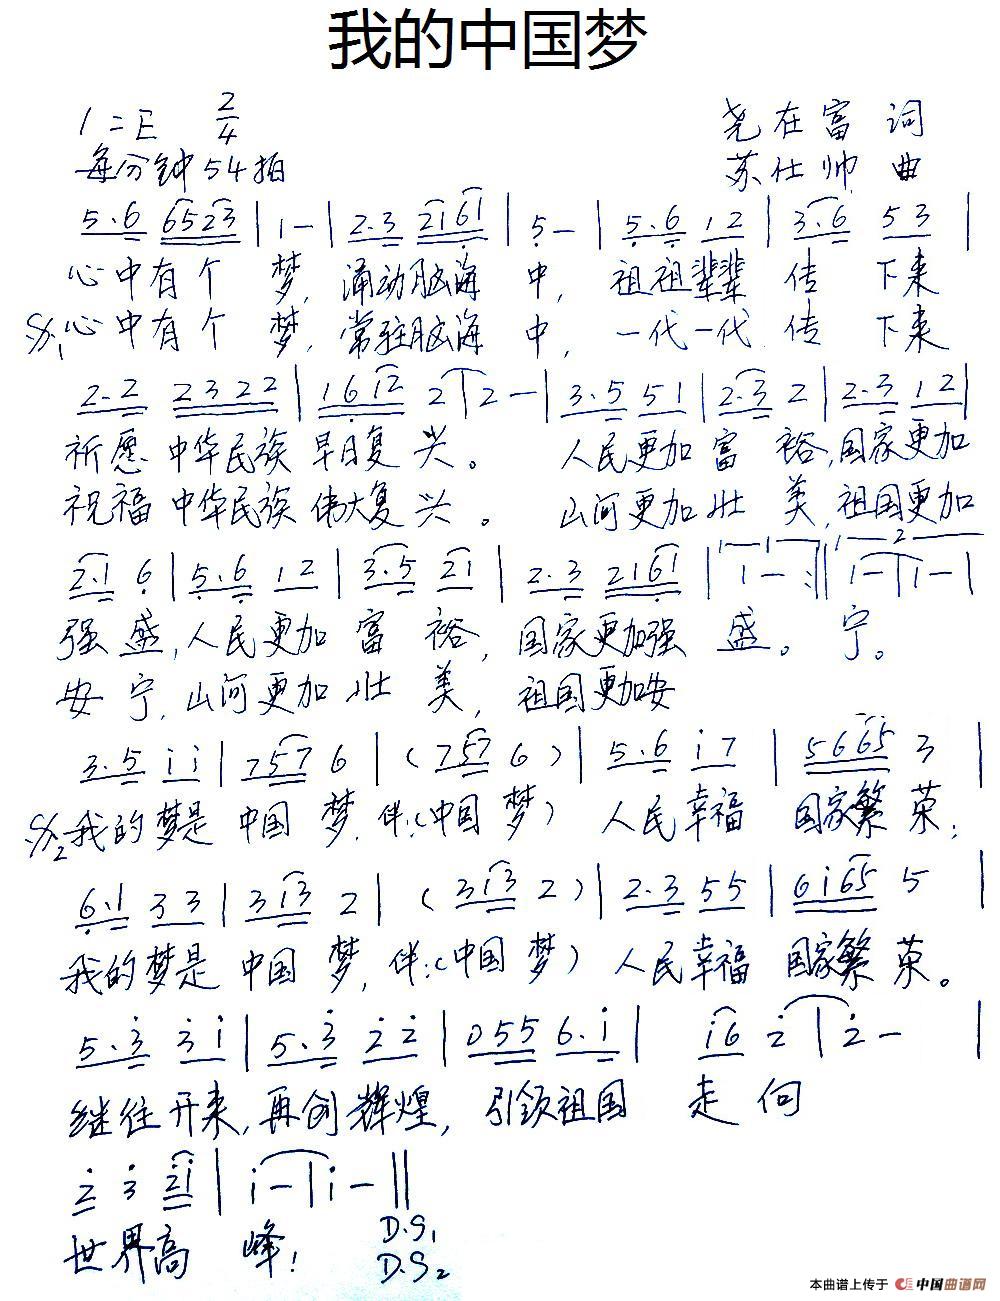 我的中国梦
1=E 2/4
尧在富 词
每分钟54拍
苏仕帅 曲
5.6 6523 | 1- | 2.3 2161 | 5- | 5.6 12 | 3.6 53 |
心中有个 梦, 涌动脑海 中, 祖祖辈辈 传 下来
心中有个 梦, 常驻脑海 中, 一代一代 传 下来
2.2 2322 | 1612 2 | 2- | 3.5 51 | 2.3 2 | 2.3 12 |
祈愿 中华民族 早日复 兴。 人民更加 富 裕,国家更加
祝福 中华民族 伟大复 兴。 山河更加 壮 美,祖国更加
2.1 6 | 5.6 12 | 3.5 21 | 2.3 2161 | 1- :|| 1- | 1- |
强 盛,人民更加 富 裕, 国家更加强 盛。 宁。
安 宁,山河更加 壮 美, 祖国更加安
3.5 ii | 757 6 | (757 6) | 5.6 i7 | 5665 3 |
我的梦是 中国 梦, 伴:(中国 梦) 人民幸福 国家繁 荣;
6.1 33 | 313 2 | (313 2) | 2.3 55 | 6i65 5 |
我的梦是 中国 梦, 伴:(中国 梦) 人民幸福 国家繁 荣。
5.3 3i | 5.3 22 | 055 6.i | i6 2 | 2- |
继往开来,再创辉煌, 引领祖国 走 向
2 3 2i | i- | i- ||
世界高 峰! D.S1
D.S2
本曲谱上传于 中国曲谱网